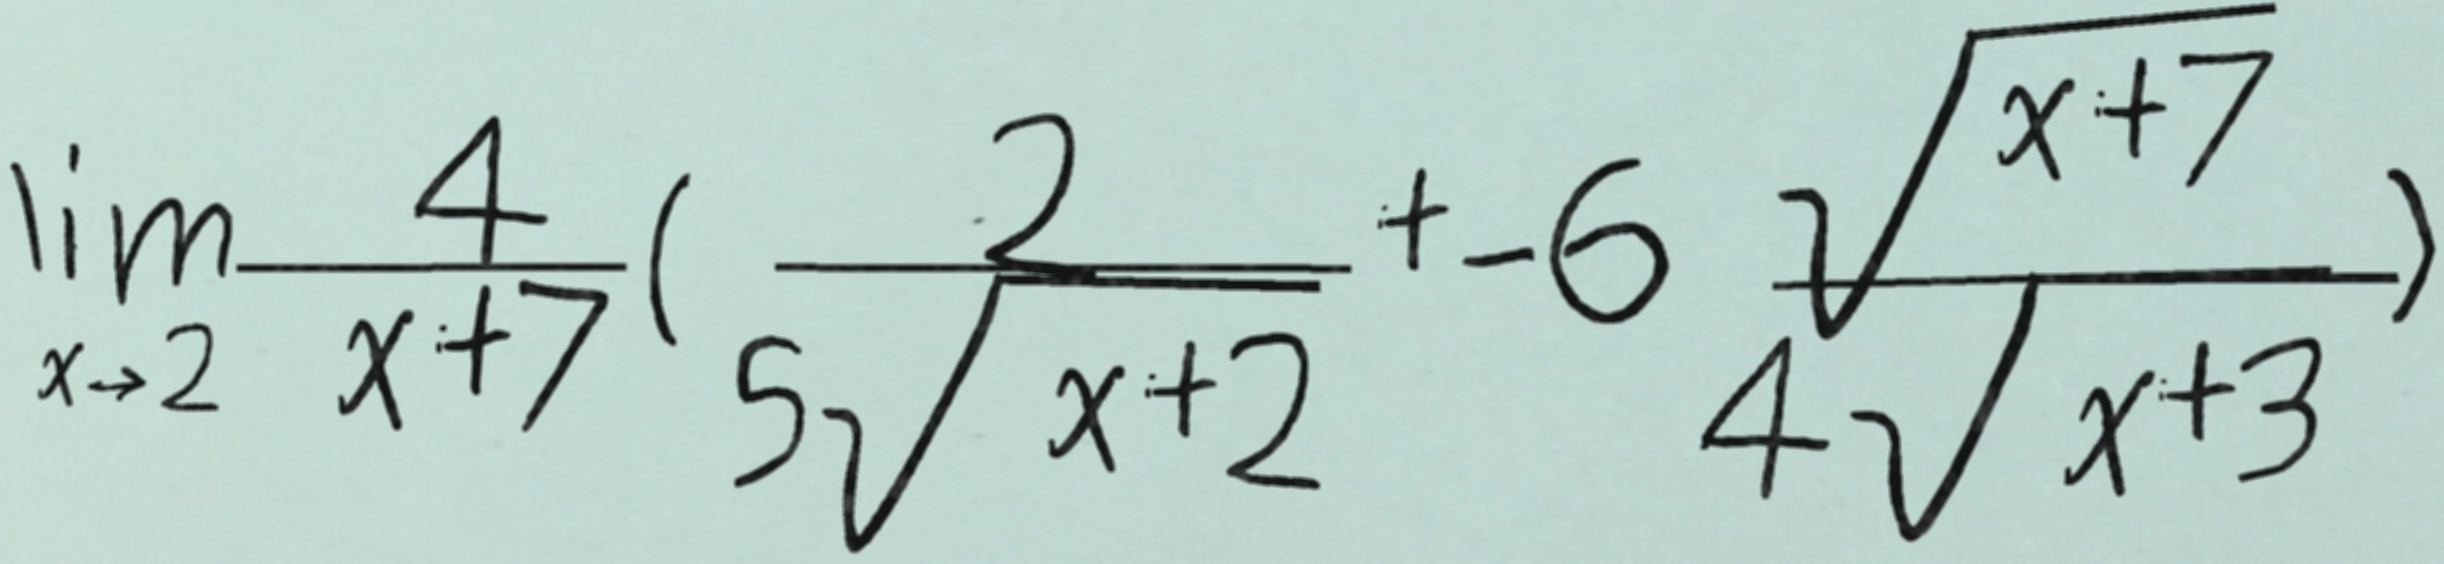 \lim_{x \to 2} \frac{4}{x+7} ( \frac{2}{5\sqrt{x+2}} + -6 \frac{\sqrt{x+7}}{4\sqrt{x+3}} )